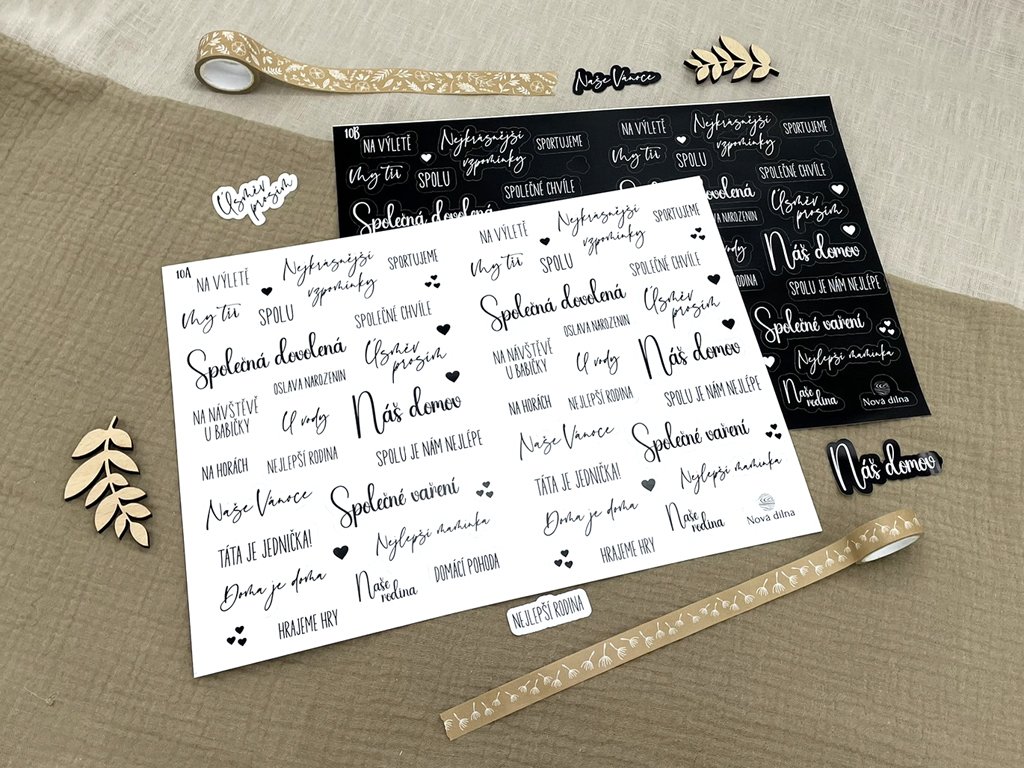 Naše Vánoce
10B
NA VÝLETĚ
Nejkrásnější
vzpomínky
SPORTUJEME
My tři
SPOLU
SPOLEČNÉ CHVÍLE
Společná dovolená
NA VÝLETĚ
Nejkrásnější
vzpomínky
SPORTUJEME
My tři
SPOLU
SPOLEČNÉ CHVÍLE
dovolená
Úsměv
prosím
NAROZENIN
vody
Náš domov
RODINA
SPOLU JE NÁM NEJLÉPE
Společné vaření
Nejlepší maminka
Naše
rodina
Nová dílna
Úsměv
prosím
10A
NA VÝLETĚ
Nejkrásnější
vzpomínky
SPORTUJEME
My tři
SPOLU
SPOLEČNÉ CHVÍLE
Společná dovolená
Úsměv
prosím
OSLAVA NAROZENIN
NA NÁVŠTĚVĚ
U BABIČKY
U vody
Náš domov
NA HORÁCH
NEJLEPŠÍ RODINA
SPOLU JE NÁM NEJLÉPE
Naše Vánoce
Společné vaření
TÁTA JE JEDNIČKA!
Nejlepší maminka
Doma je doma
Naše
rodina
DOMÁCÍ POHODA
HRAJEME HRY
NA VÝLETĚ
Nejkrásnější
vzpomínky
SPORTUJEME
My tři
SPOLU
SPOLEČNÉ CHVÍLE
Společná dovolená
Úsměv
prosím
OSLAVA NAROZENIN
NA NÁVŠTĚVĚ
U BABIČKY
U vody
Náš domov
NA HORÁCH
NEJLEPŠÍ RODINA
SPOLU JE NÁM NEJLÉPE
Naše Vánoce
Společné vaření
TÁTA JE JEDNIČKA!
Nejlepší maminka
Doma je doma
Naše
rodina
Nová dílna
HRAJEME HRY
Náš domov
NEJLEPŠÍ RODINA